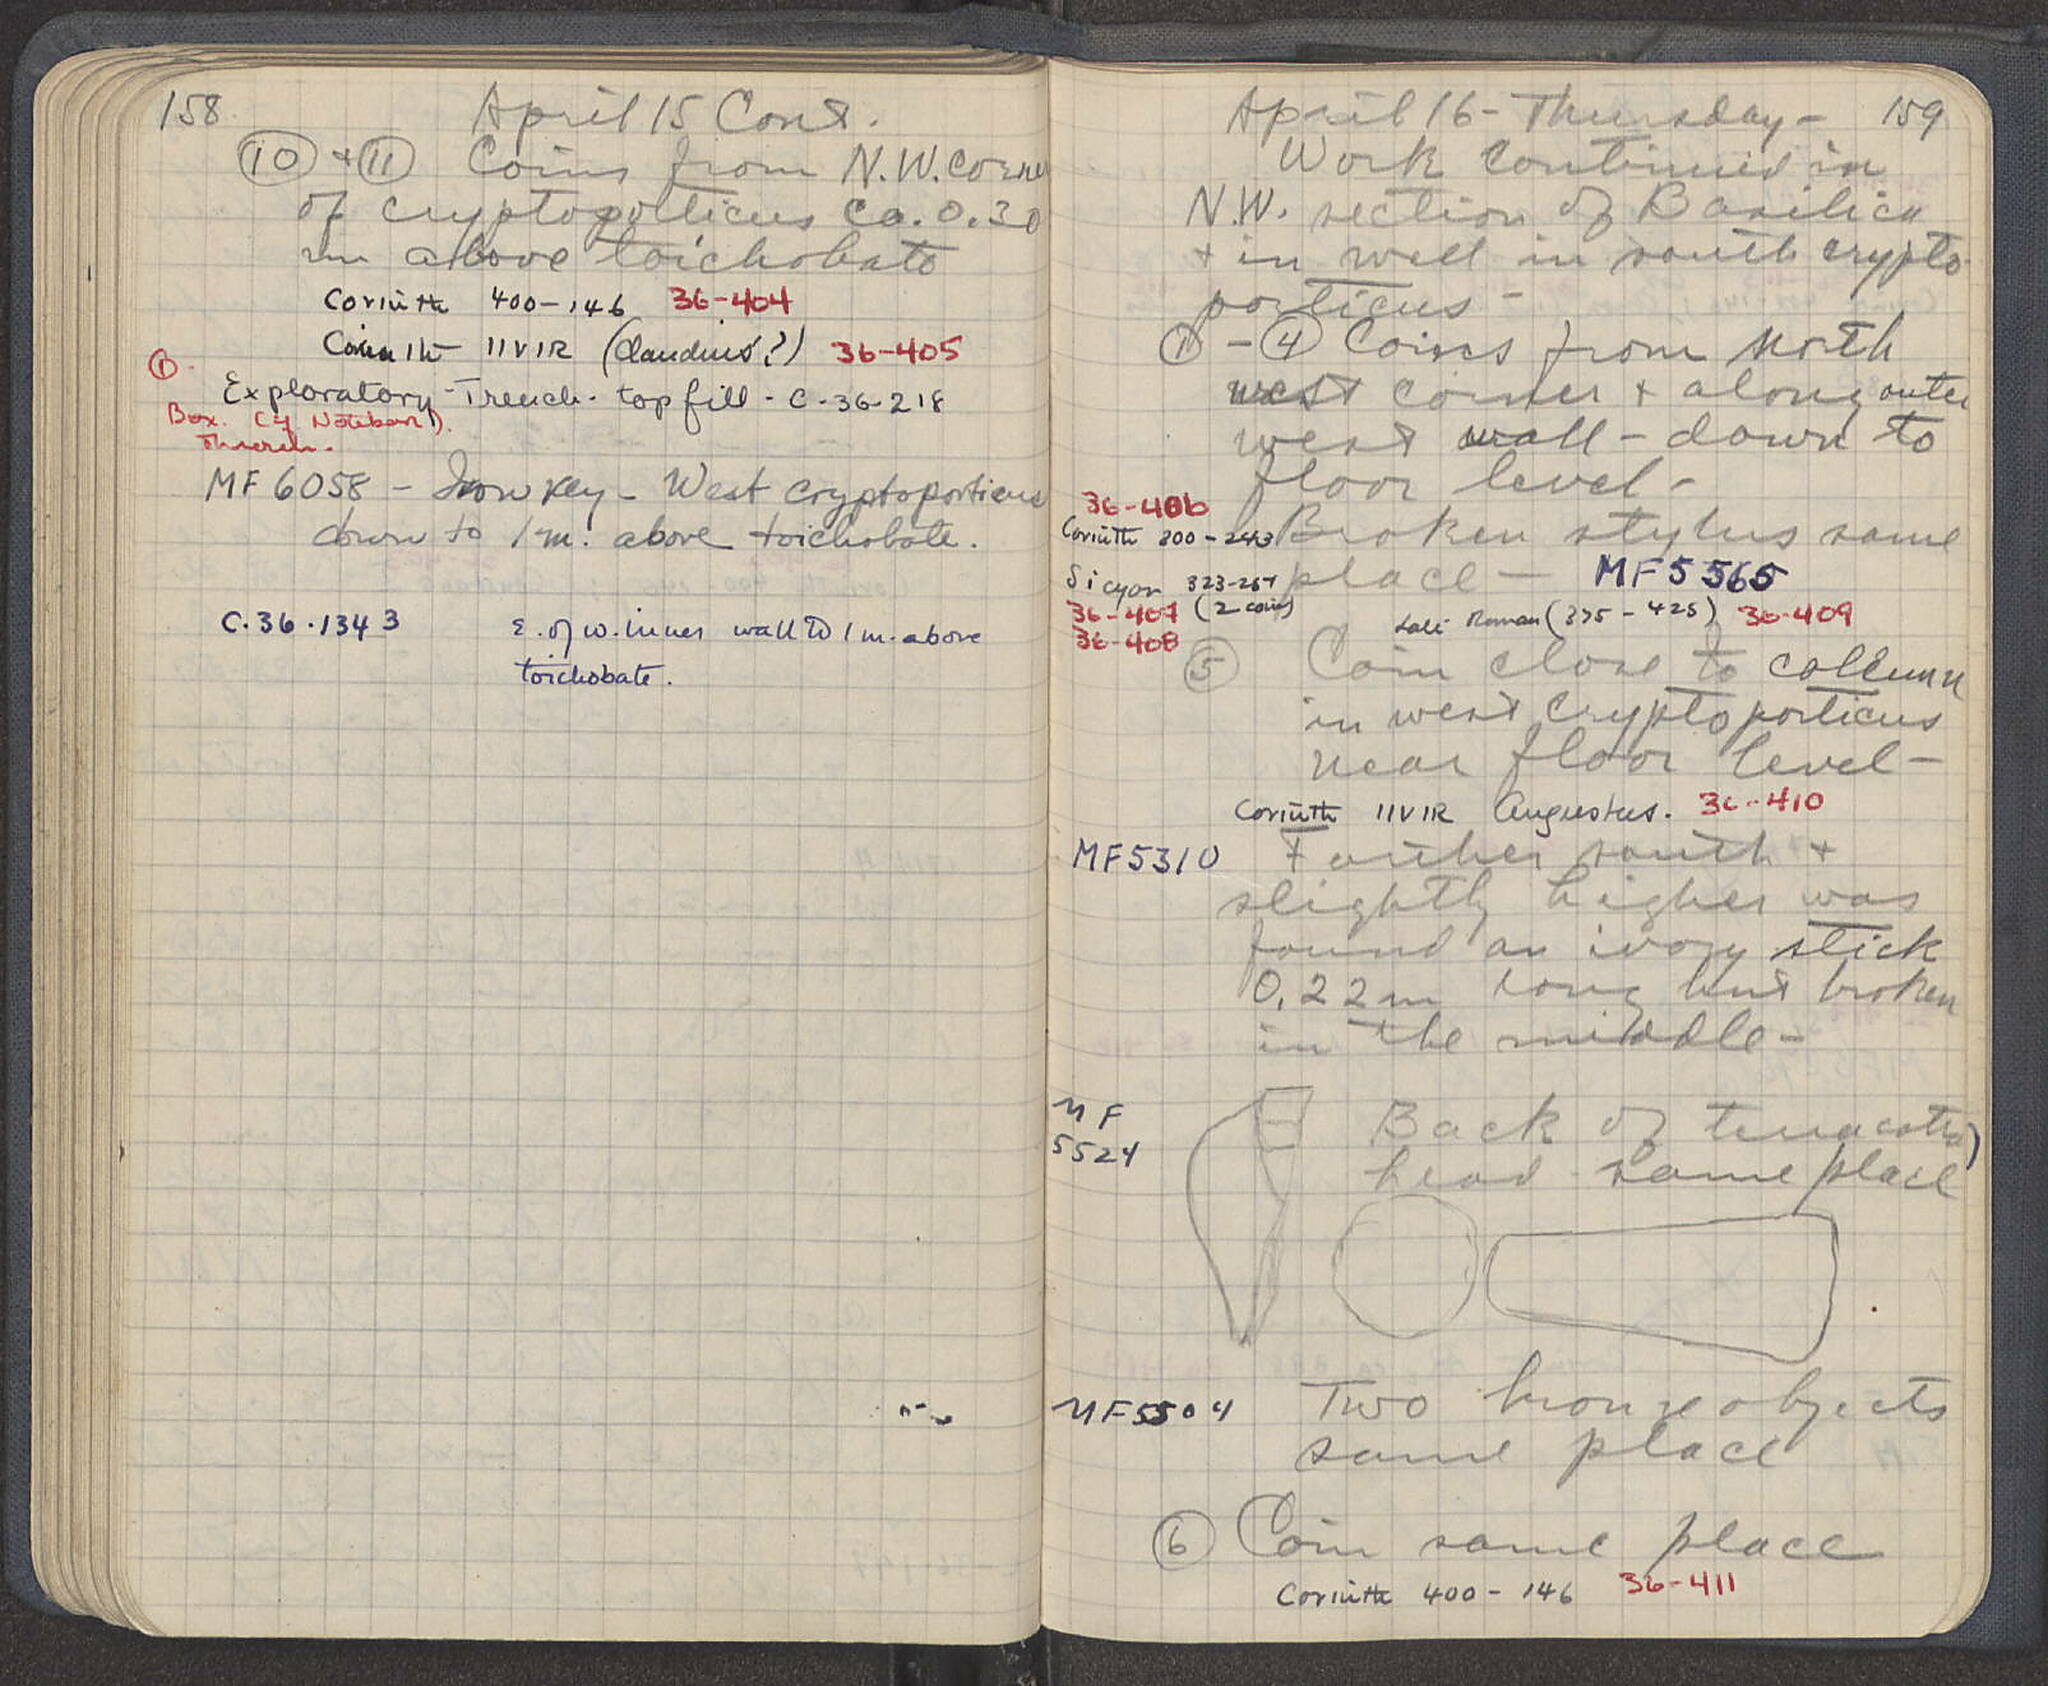 158
April 15 Cont.
10 + 11 Coins from N.W. corner
of cryptoporticus ca. 0.30
m above toichobate
Corinth 400-146 36-404
Corinth IIVIR (Claudius?) 36-405
①
Exploratory Trench - top fill - C-36-218
Box. (cf Notebook).
MF 6058 - Iron key - West cryptoporticus
down to 1 m. above toichobate.
C.36.1343 E. of w. inner wall to 1 m. above
toichobate.
April 16 - Thursday - 159
Work continued in
N.W. section of Basilica
+ in well in south crypto
porticus -
① - ④ Coins from north
west corner + along outer
west wall - down to
floor level -
36-406
Corinth 300-243 Broken stylus same
place - MF5565
Sicyon 323-251
36-407 (2 coins)
36-408
Late Roman (375-425) 36-409
⑤ Coin close to collumn
in west cryptoporticus
near floor level -
Corinth IIVIR Augustus. 36-410
MF5310 Farther south +
slightly higher was
found an ivory stick
0,22m long but broken
in the middle -
MF
5524
Back of terracotta
head same place
MF5504 Two bronze objects
same place
⑥ Coin same place
Corinth 400-146 36-411